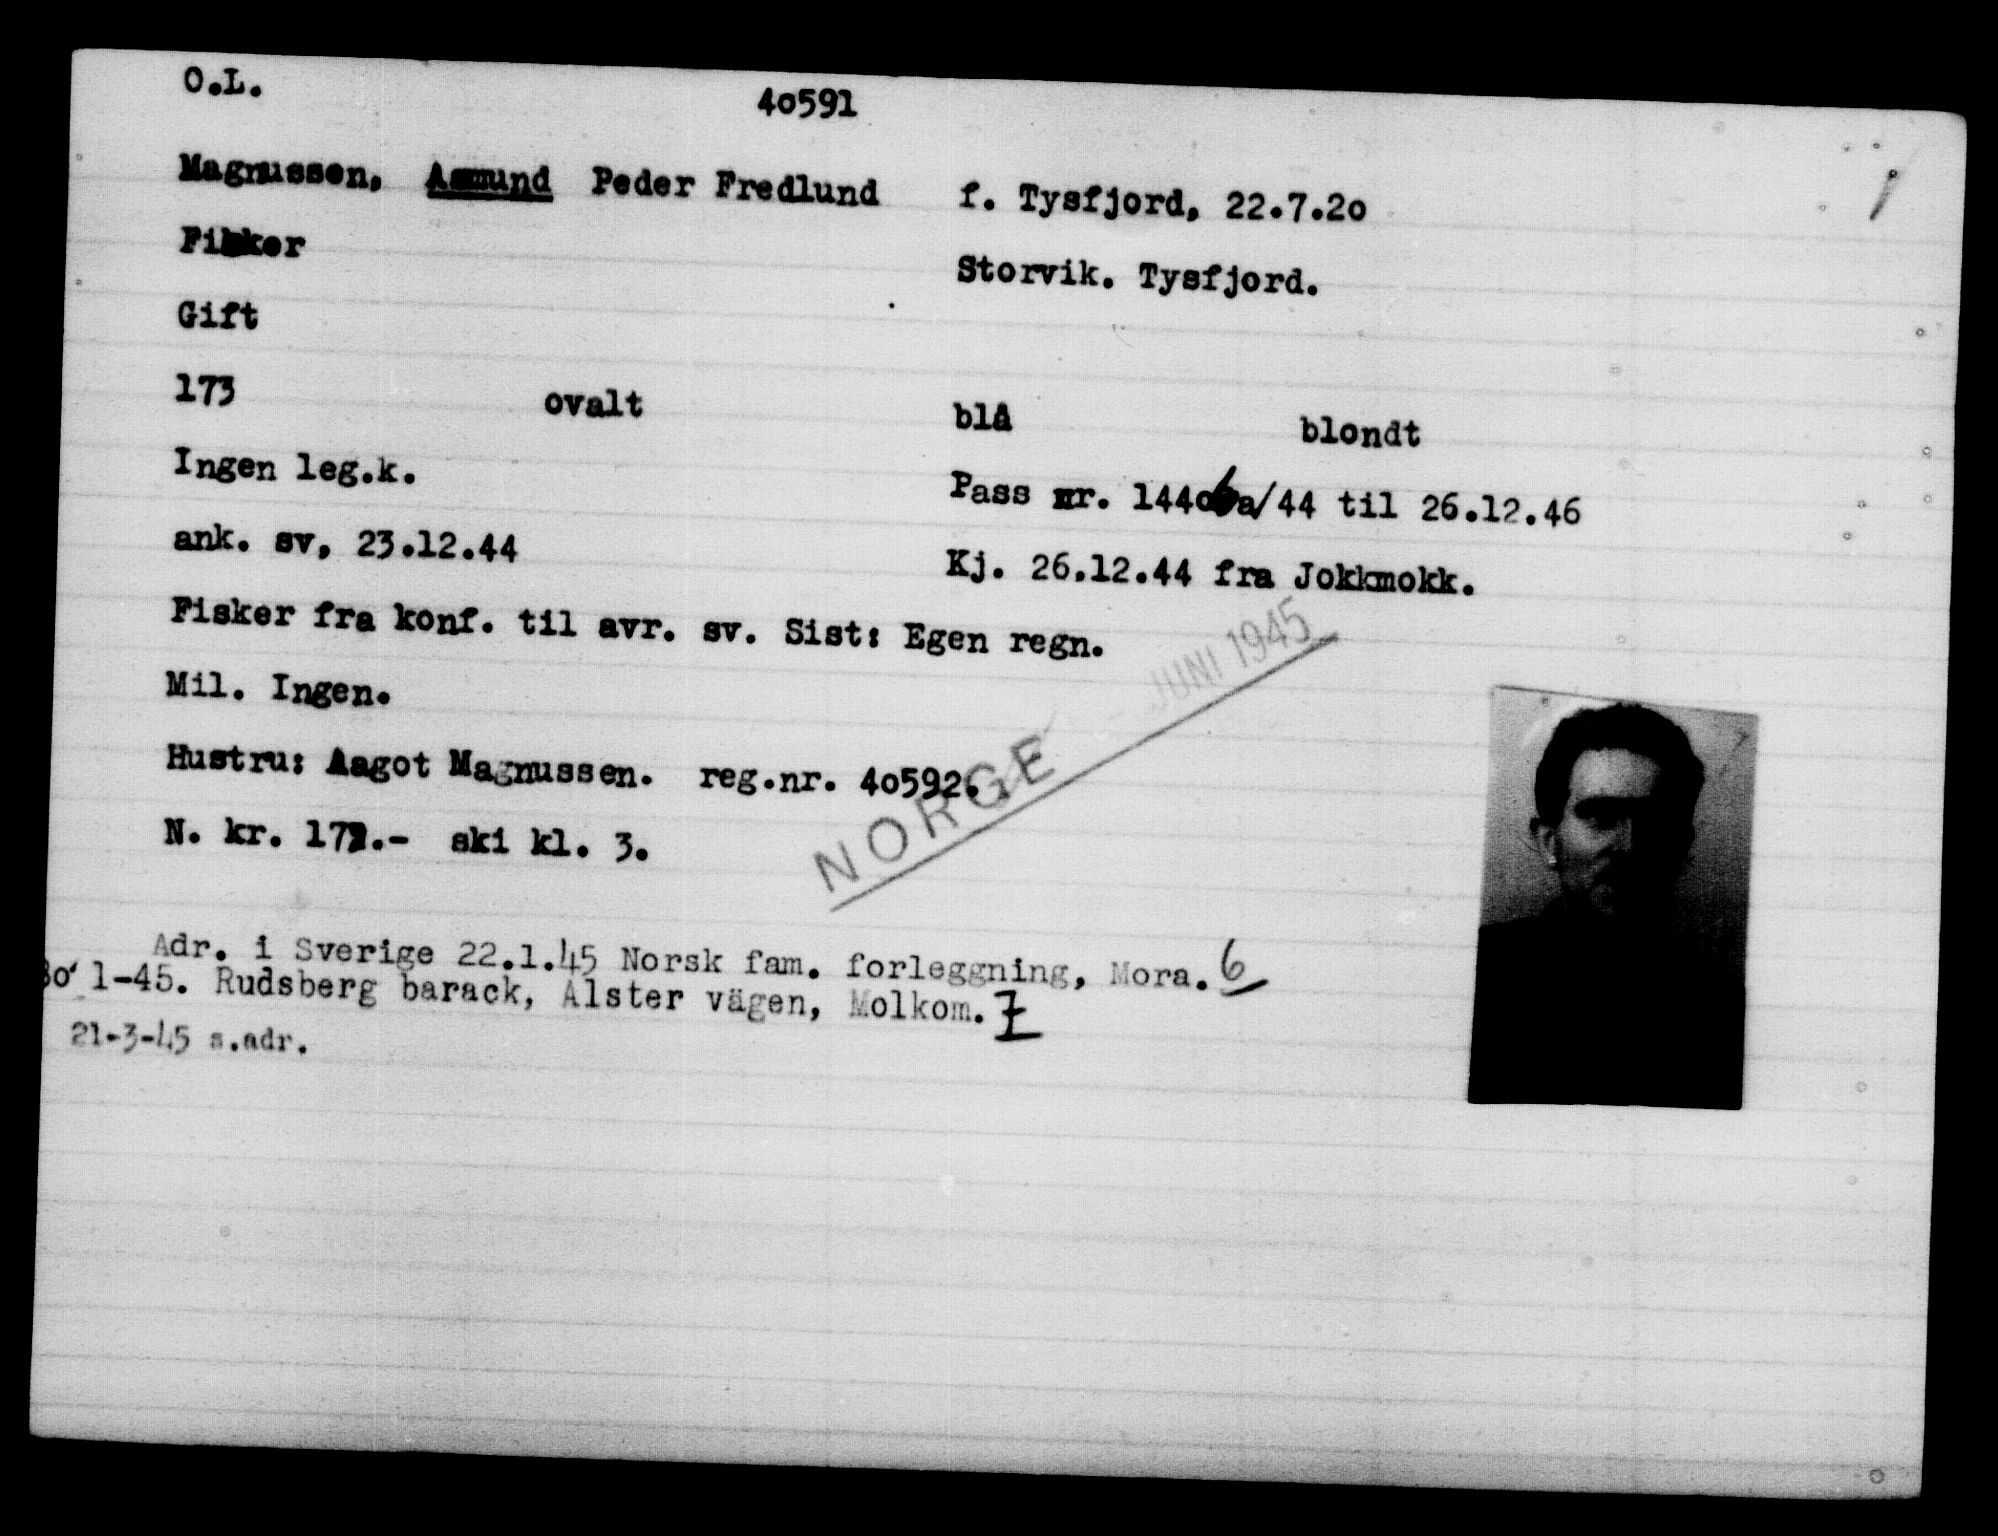 O.L. 40591
Magnussen, Asmund Peder Fredlund f. Tysfjord, 22.7.20
Fisker Storvik. Tysfjord.
Gift
173 ovalt blå blondt
Ingen leg.k. Pass nr. 14406a/44 til 26.12.46
ank. sv, 23.12.44 Kj. 26.12.44 fra Jokkmokk.
Fisker fra konf. til avr. sv. Sist: Egen regn.
Mil. Ingen.
Hustru: Aagot Magnussen. reg.nr. 40592.
N. kr. ski kl. 3.
NORGE JUNI 1945
Adr. i Sverige 22.1.45 Norsk fam. forleggning, Mora. 6
30/1-45. Rudsberg barack, Alster vägen, Molkom. 7
21-3-45 s.adr.